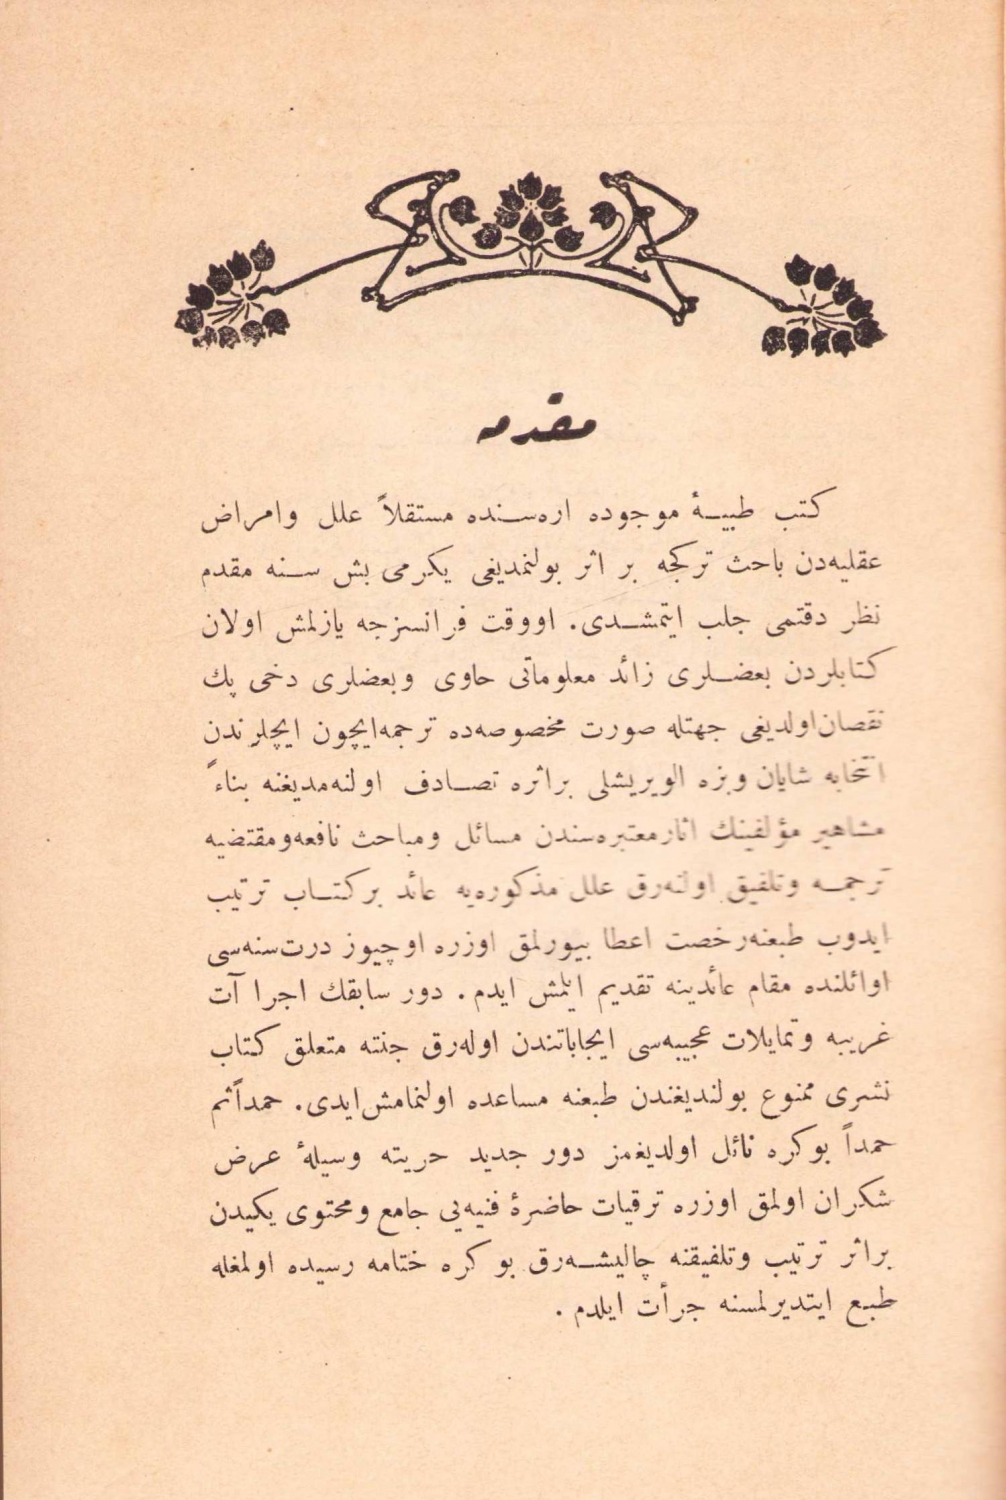 مقدمه
كتب طبیۀ موجوده اره‌سنده مستقلاً علل وامراض
عقلیه‌دن باحث تركجه بر اثر بولنمدیغی یكرمی بش سنه مقدم
نظر دقتمی جلب ایتمشدی. اووقت فرانسزجه یازلمش اولان
كتابلردن بعضلری زائد معلوماتی حاوی وبعضلری دخی پك
نقصان اولدیغی جهتله صورت مخصوصه‌ده ترجمه ایچون ایچلرندن
انتخابه شایان وبزه الویریشلی براثره تصادف اولنه‌مدیغنه بناءً
مشاهیر مؤلفینك اثار معتبره‌سندن مسائل ومباحث نافعه ومقتضیه
ترجمه وتلفیق اولنه‌رق علل مذكوره‌یه عائد بركتاب ترتیب
ایدوب طبعنه رخصت اعطا بیورلمق اوزره اوچیوز درت سنه‌سی
اوائلنده مقام عائدینه تقدیم ایلمش ایدم. دور سابقك اجرا آت
غریبه وتمایلات عجیبه‌سی ایجاباتندن اوله‌رق جنته متعلق كتاب
نشری ممنوع بولندیغندن طبعنه مساعده اولنمامش ایدی. حمداً ثم
حمداً بوكره نائل اولدیغمز دور جدید حریته وسیلۀ عرض
شكران اولمق اوزره ترقیات حاضرۀ فنیه‌یی جامع ومحتوی یكیدن
براثر ترتیب وتلفیقنه چالیشه‌رق بو كره ختامه رسیده اولمغله
طبع ایتدیرلمسنه جرأت ایلدم.